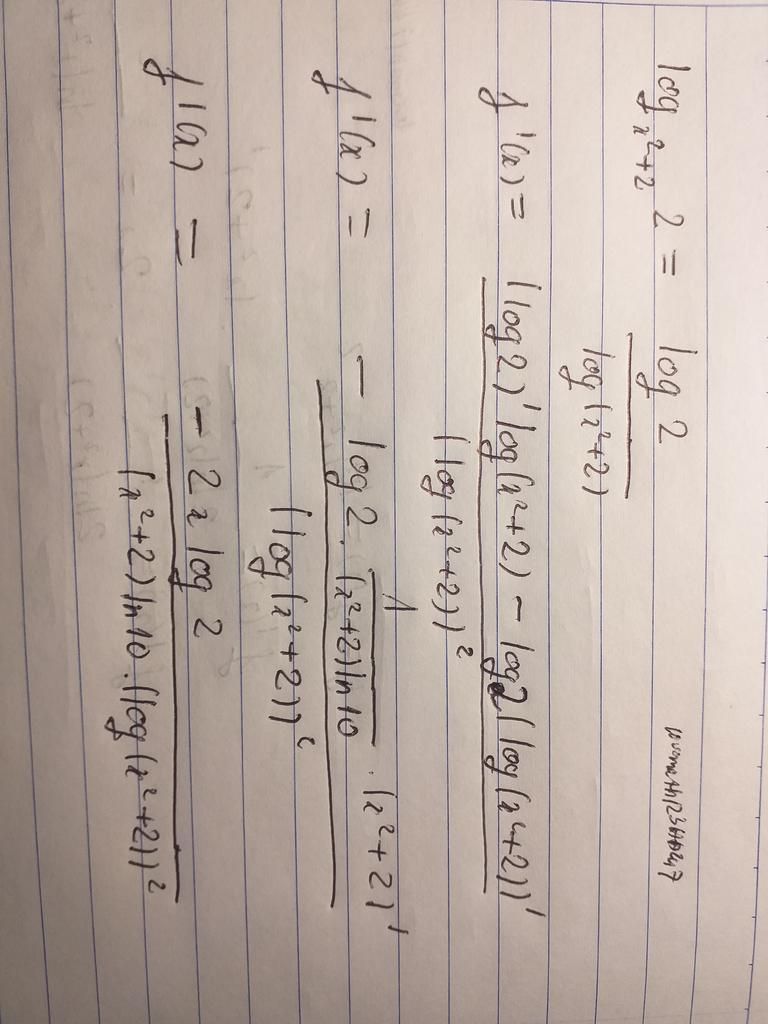 log_{x²+2} 2 = \frac{log 2}{log(x²+2)}
f'(x) = \frac{(log 2)' log(x²+2) - log2(log(x²+2))'}{(log(x²+2))²}
f'(x) = \frac{- log 2 · \frac{1}{(x²+2) ln 10} · (x²+2)'}{(log(x²+2))²}
f'(x) = \frac{- 2x log 2}{(x²+2) ln 10 · (log(x²+2))²}